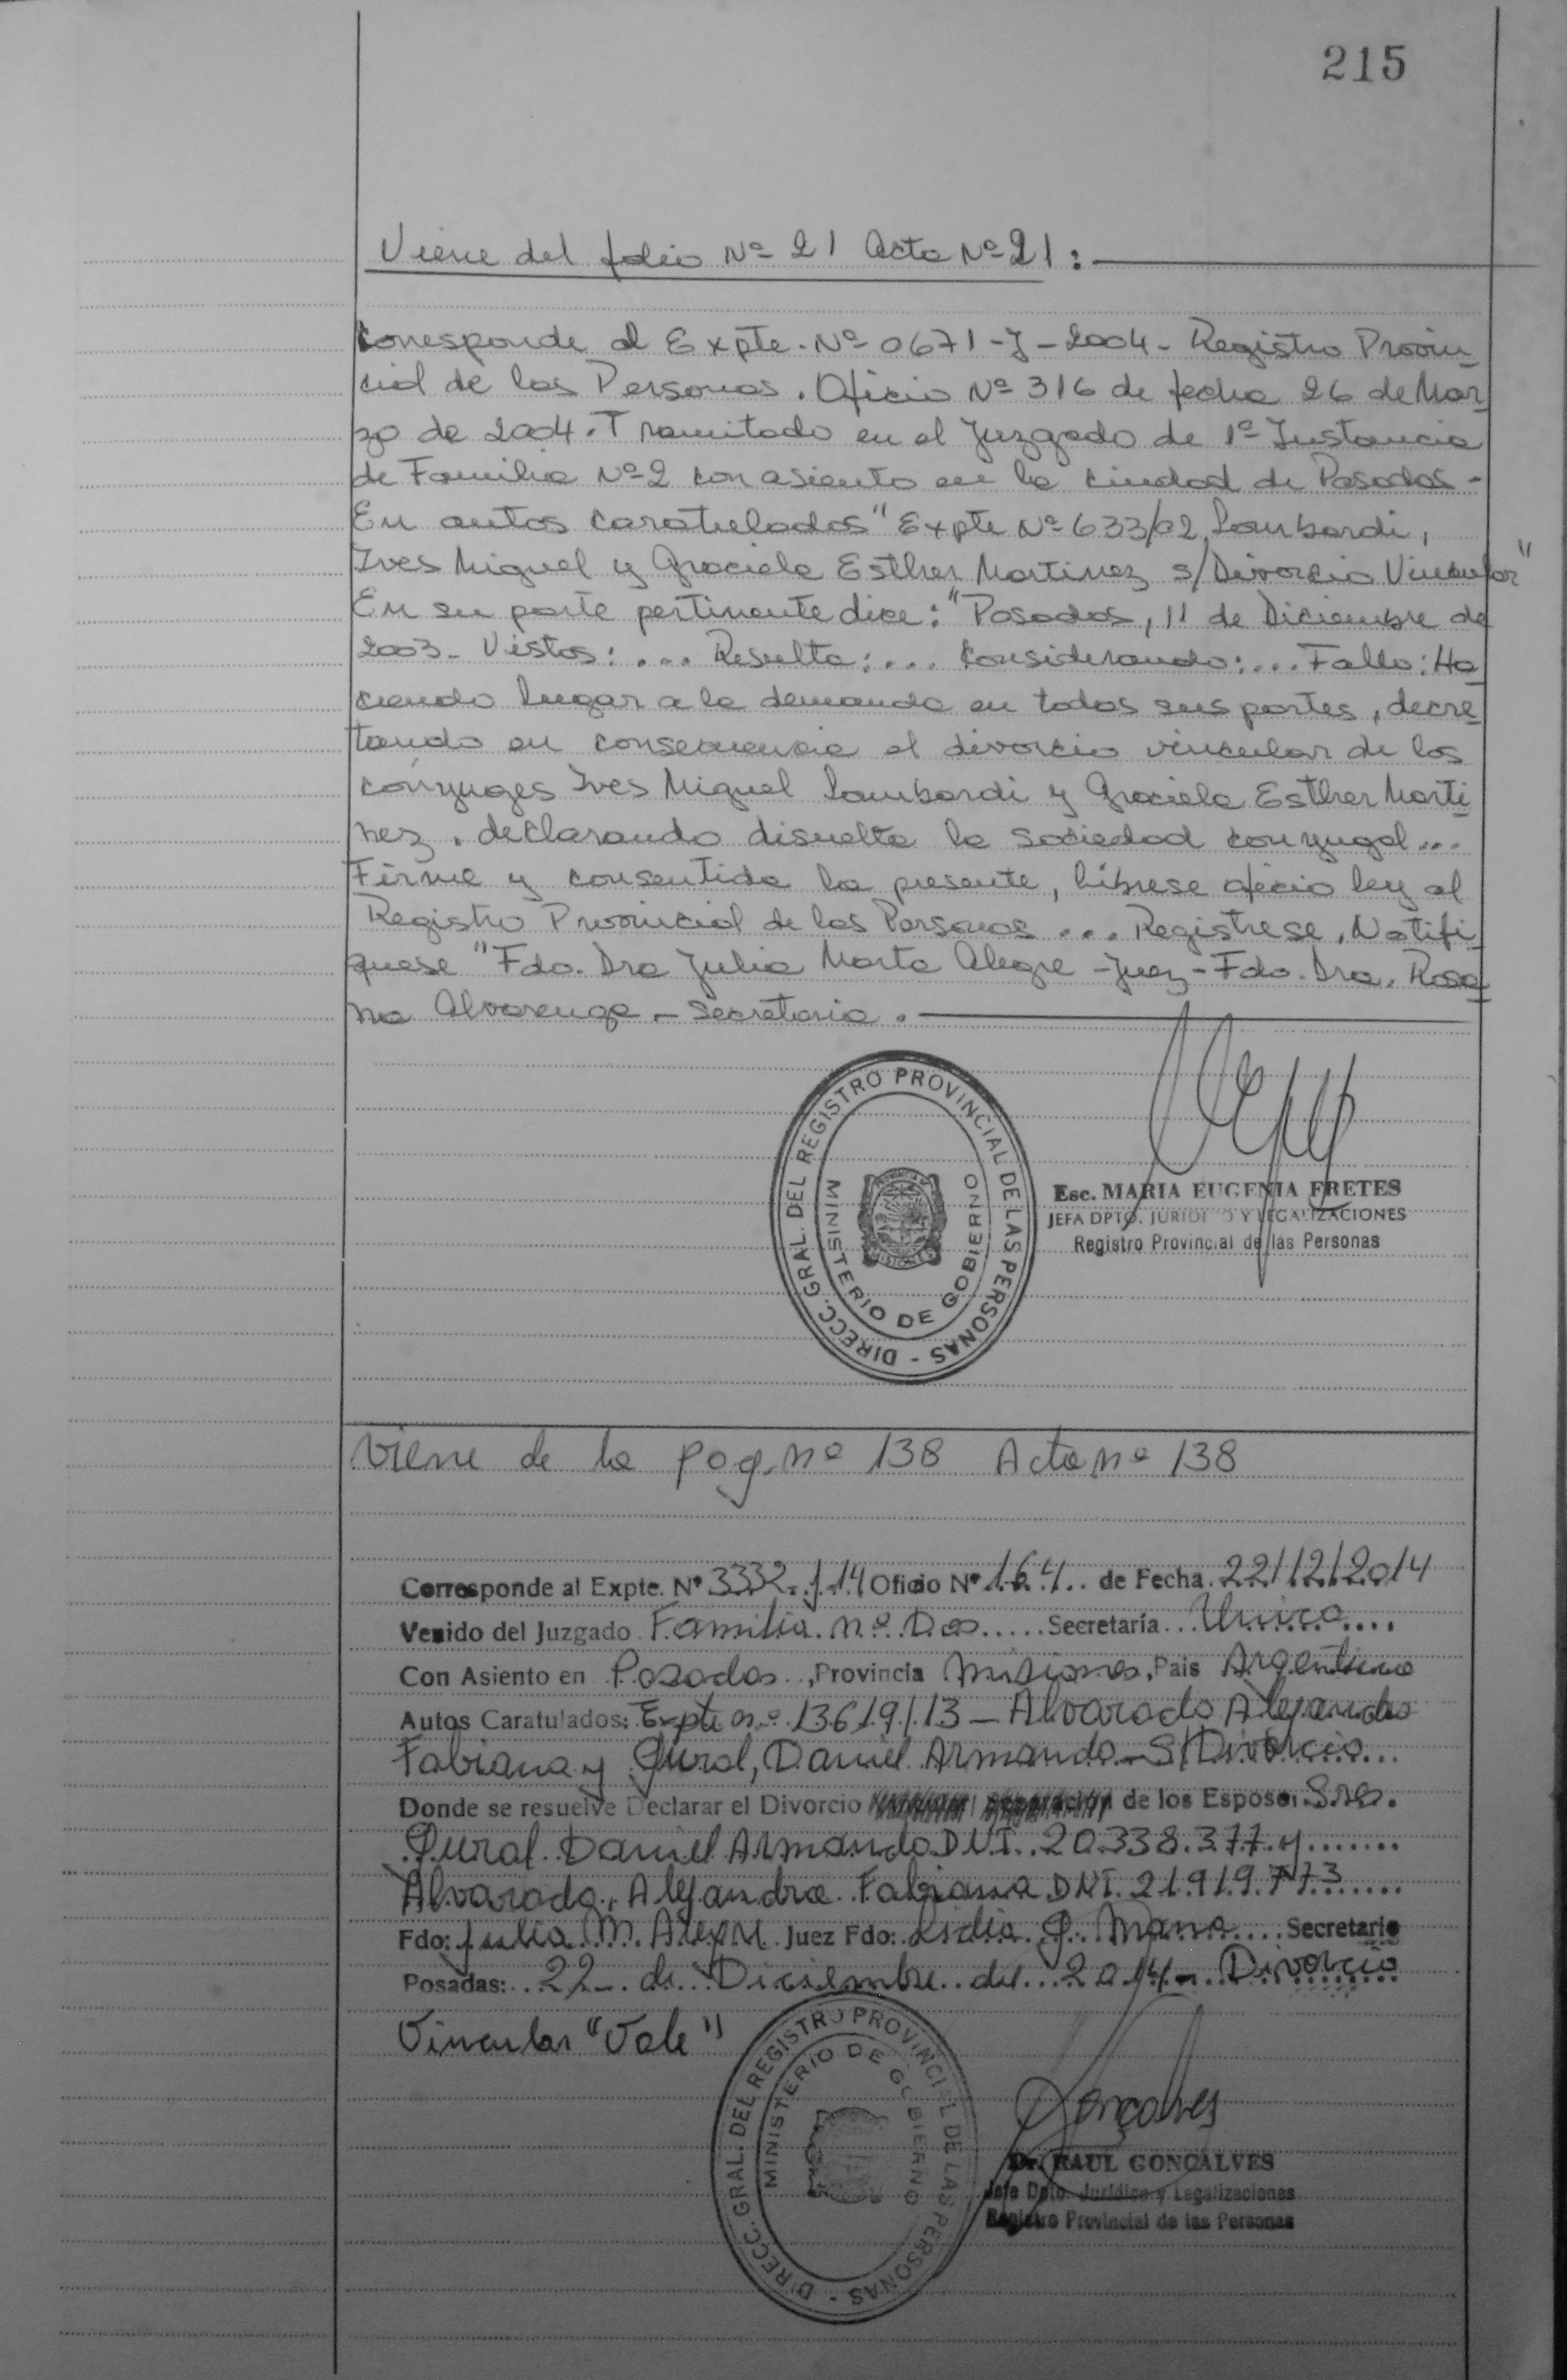 215
Viene del folio Nº 21 Acta Nº 21:
Corresponde al Expte. Nº 0671-J-2004- Registro Provin
cial de las Personas. Oficio Nº 316 de fecha 26 de Mar
zo de 2004. Tramitado en el Juzgado de 1ª Instancia
de Familia Nº 2 con asiento en la ciudad de Posadas -
En autos caratulados "Expte Nº 633/02 Lombardi,
Ives Miguel y Graciela Esther Martinez s/Divorcio Vincular"
En su parte pertinente dice: "Posadas, 11 de Diciembre de
2003- Vistos: ... Resulta: ... Considerando: ... Fallo: Ha
ciendo lugar a la demanda en todas sus partes, decre
tando en consecuencia el divorcio vincular de los
cónyuges Ives Miguel Lombardi y Graciela Esther Marti
nez. declarando disuelta la sociedad conyugal ...
Firme y consentida la presente, líbrese oficio ley al
Registro Provincial de las Personas ... Registrese, Notifi
quese "Fdo. Dra Julia Marta Alegre - Juez - Fdo. Dra. Rosa
na Alvarenga - Secretaria.
DIRECC. GRAL. DEL REGISTRO PROVINCIAL DE LAS PERSONAS -
MINISTERIO DE GOBIERNO
MISIONES
Esc. MARIA EUGENIA FRETES
JEFA DPTO. JURIDICO Y LEGALIZACIONES
Registro Provincial de las Personas
Viene de la pag. nº 138 Acta nº 138
Corresponde al Expte. Nº 3332-J-14 Oficio Nº 164 de Fecha 22/12/2014
Venido del Juzgado Familia nº Dos Secretaría Unica
Con Asiento en Posadas, Provincia Misiones, Pais Argentina
Autos Caratulados: Expte nº 13619/13 - Alvarado Alejandra
Fabiana y Gural, Daniel Armando - S/Divorcio
Donde se resuelve Declarar el Divorcio de los Esposos Sres.
Gural Daniel Armando DNI. 20.338.377 y
Alvarado, Alejandra Fabiana DNI. 21.919.773
Fdo: Julia M. Alegre Juez Fdo: Lidia G. Mana Secretario
Posadas: 22 - de Diciembre del 2014 - Divorcio
Vincular "Vale"
DIRECC. GRAL. DEL REGISTRO PROVINCIAL DE LAS PERSONAS -
MINISTERIO DE GOBIERNO
Gonçalves
Dr. RAUL GONCALVES
Jefe Dpto. Jurídico y Legalizaciones
Registro Provincial de las Personas